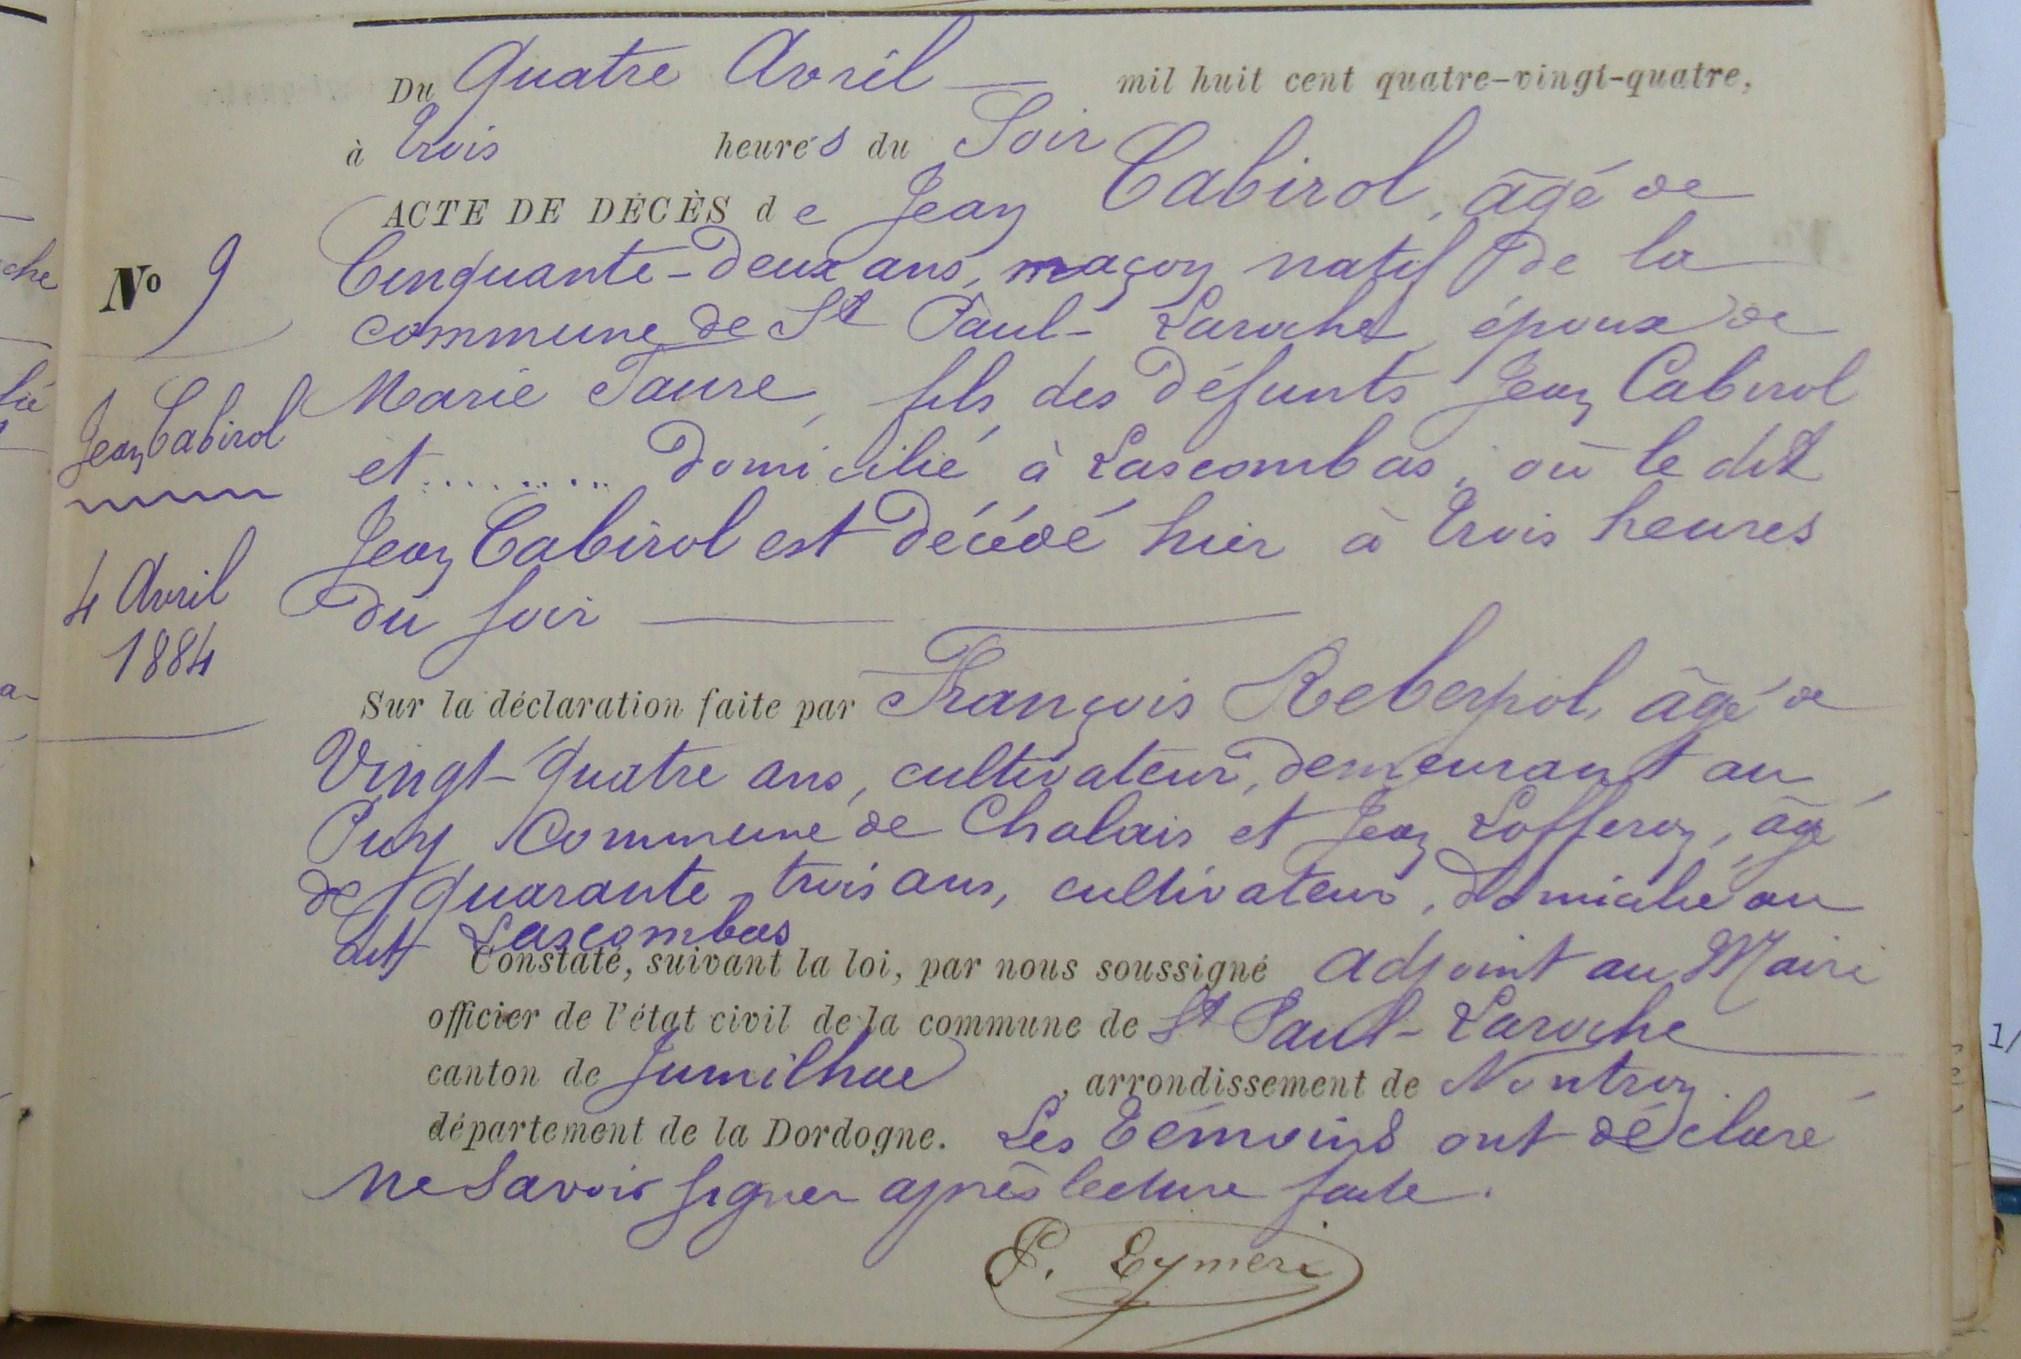 Du Quatre Avril — mil huit cent quatre-vingt-quatre,
à trois heures du Soir
ACTE DE DÉCÈS de Jean Cabirol, âgé de
Cinquante-deux ans, maçon natif de la
commune de St Paul-Laroche, époux de
Marie Faure, fils des défunts Jean Cabirol
et ......... domicilié à Lascombas, où le dit
Jean Cabirol est décédé hier à trois heures
du soir
Sur la déclaration faite par François Reberpol, âgé de
Vingt-quatre ans, cultivateur, demeurant au
Puy commune de Chalais et Jean Lofferon, âgé
de quarante trois ans, cultivateur, domicilié au
dit Lascombas
Constaté, suivant la loi, par nous soussigné adjoint au Maire
officier de l'état civil de la commune de St Paul-Laroche
canton de Jumilhac, arrondissement de Nontron
département de la Dordogne. Les témoins ont déclaré
ne savoir signer après lecture faite.
P. Eymeri
No 9
Jean Cabirol
4 Avril
1884